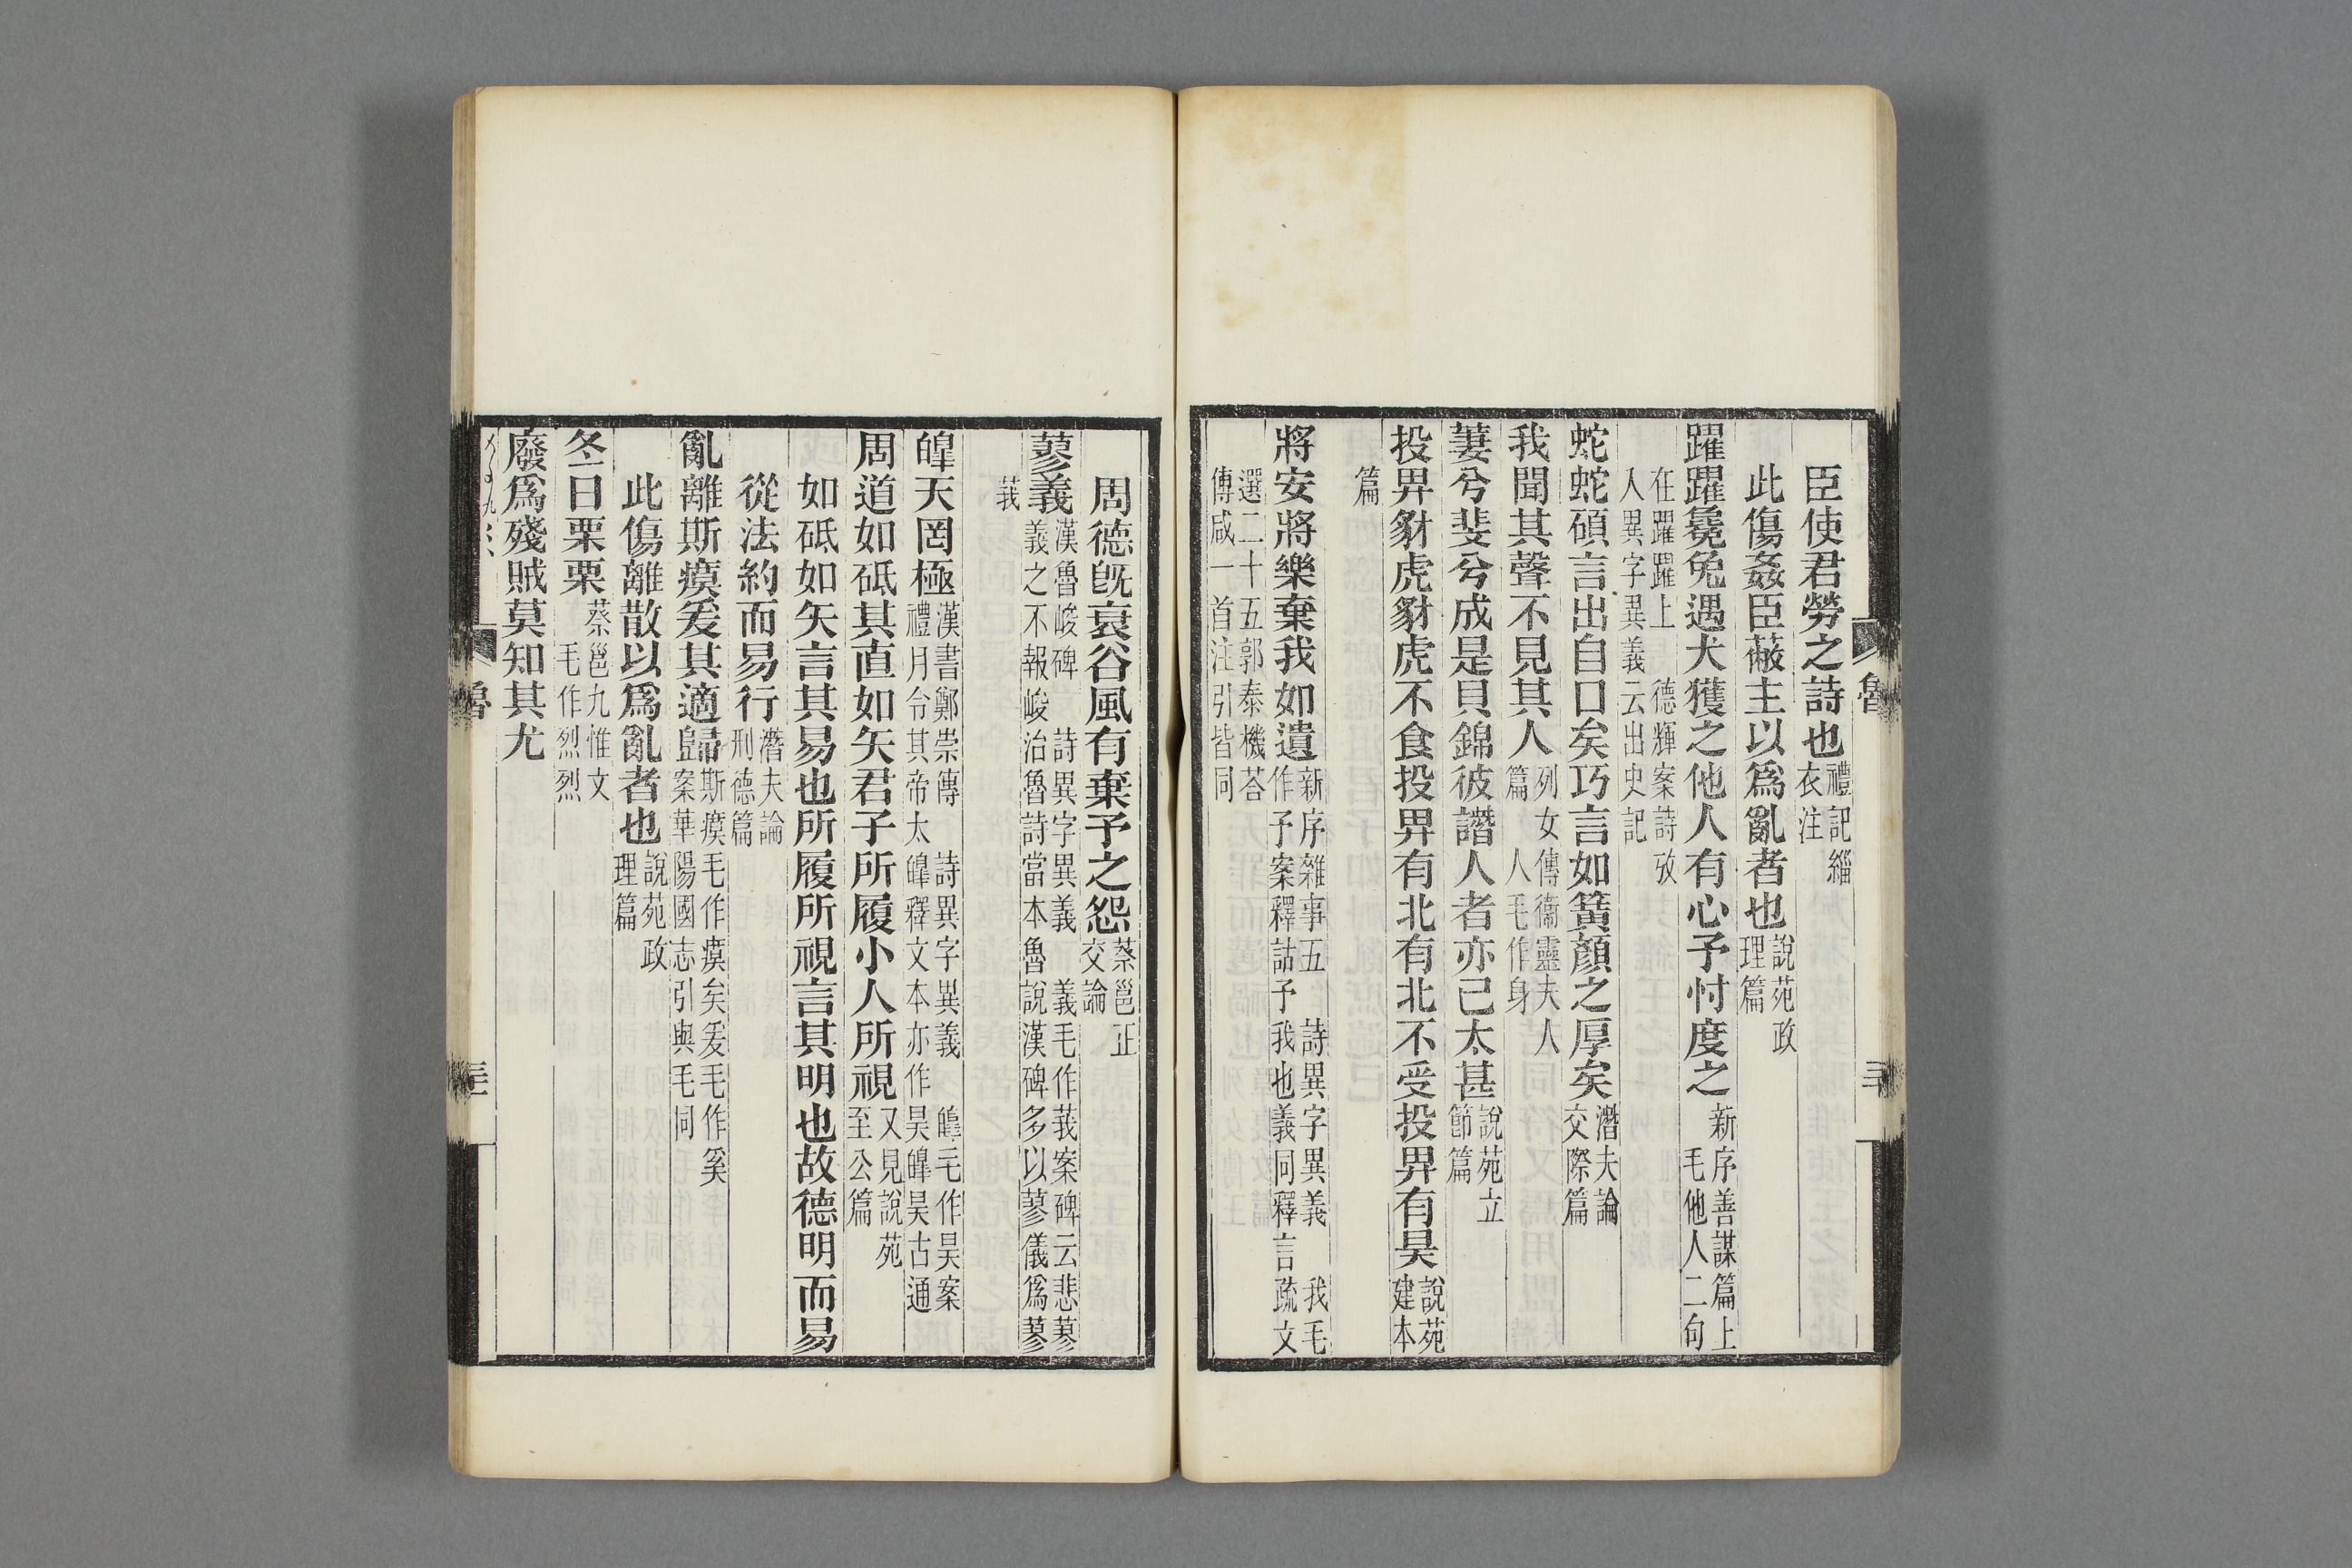 臣使君勞之詩也禮記緇衣注
此傷姦臣蔽主以爲亂者也說苑政理篇
躍躍毚兔遇犬獲之他人有心予忖度之新序善謀篇上毛他人二句
在躍躍上 德輝案詩攷人異字異義云出史記
蛇蛇碩言出自口矣巧言如簧顏之厚矣潛夫論交際篇
我聞其聲不見其人列女傳衞靈夫人篇 人毛作身
萋兮斐兮成是貝錦彼譖人者亦已太甚說苑立節篇
投畀豺虎豺虎不食投畀有北有北不受投畀有昊說苑建本
篇
將安將樂棄我如遺新序雜事五 詩異字異義 我毛作予案釋詁予我也義同釋言疏文
選二十五郭泰機荅傅咸一首注引皆同
魯
三十
周德旣衰谷風有棄予之怨蔡邕正交論
蓼義漢魯峻碑 詩異字異義 義毛作莪案碑云悲蓼義之不報峻治魯詩當本魯說漢碑多以蓼儀爲蓼
莪
皡天罔極漢書鄭崇傳 詩異字異義 皡毛作昊案禮月令其帝太皡釋文本亦作昊皡昊古通
周道如砥其直如矢君子所履小人所視又見說苑至公篇
如砥如矢言其易也所履所視言其明也故德明而易
從法約而易行潛夫論刑德篇
亂離斯瘼爰其適歸斯瘼毛作瘼矣爰毛作奚案華陽國志引與毛同
此傷離散以爲亂者也說苑政理篇
冬日栗栗蔡邕九惟文 毛作烈烈
廢爲殘賊莫知其尤
魯